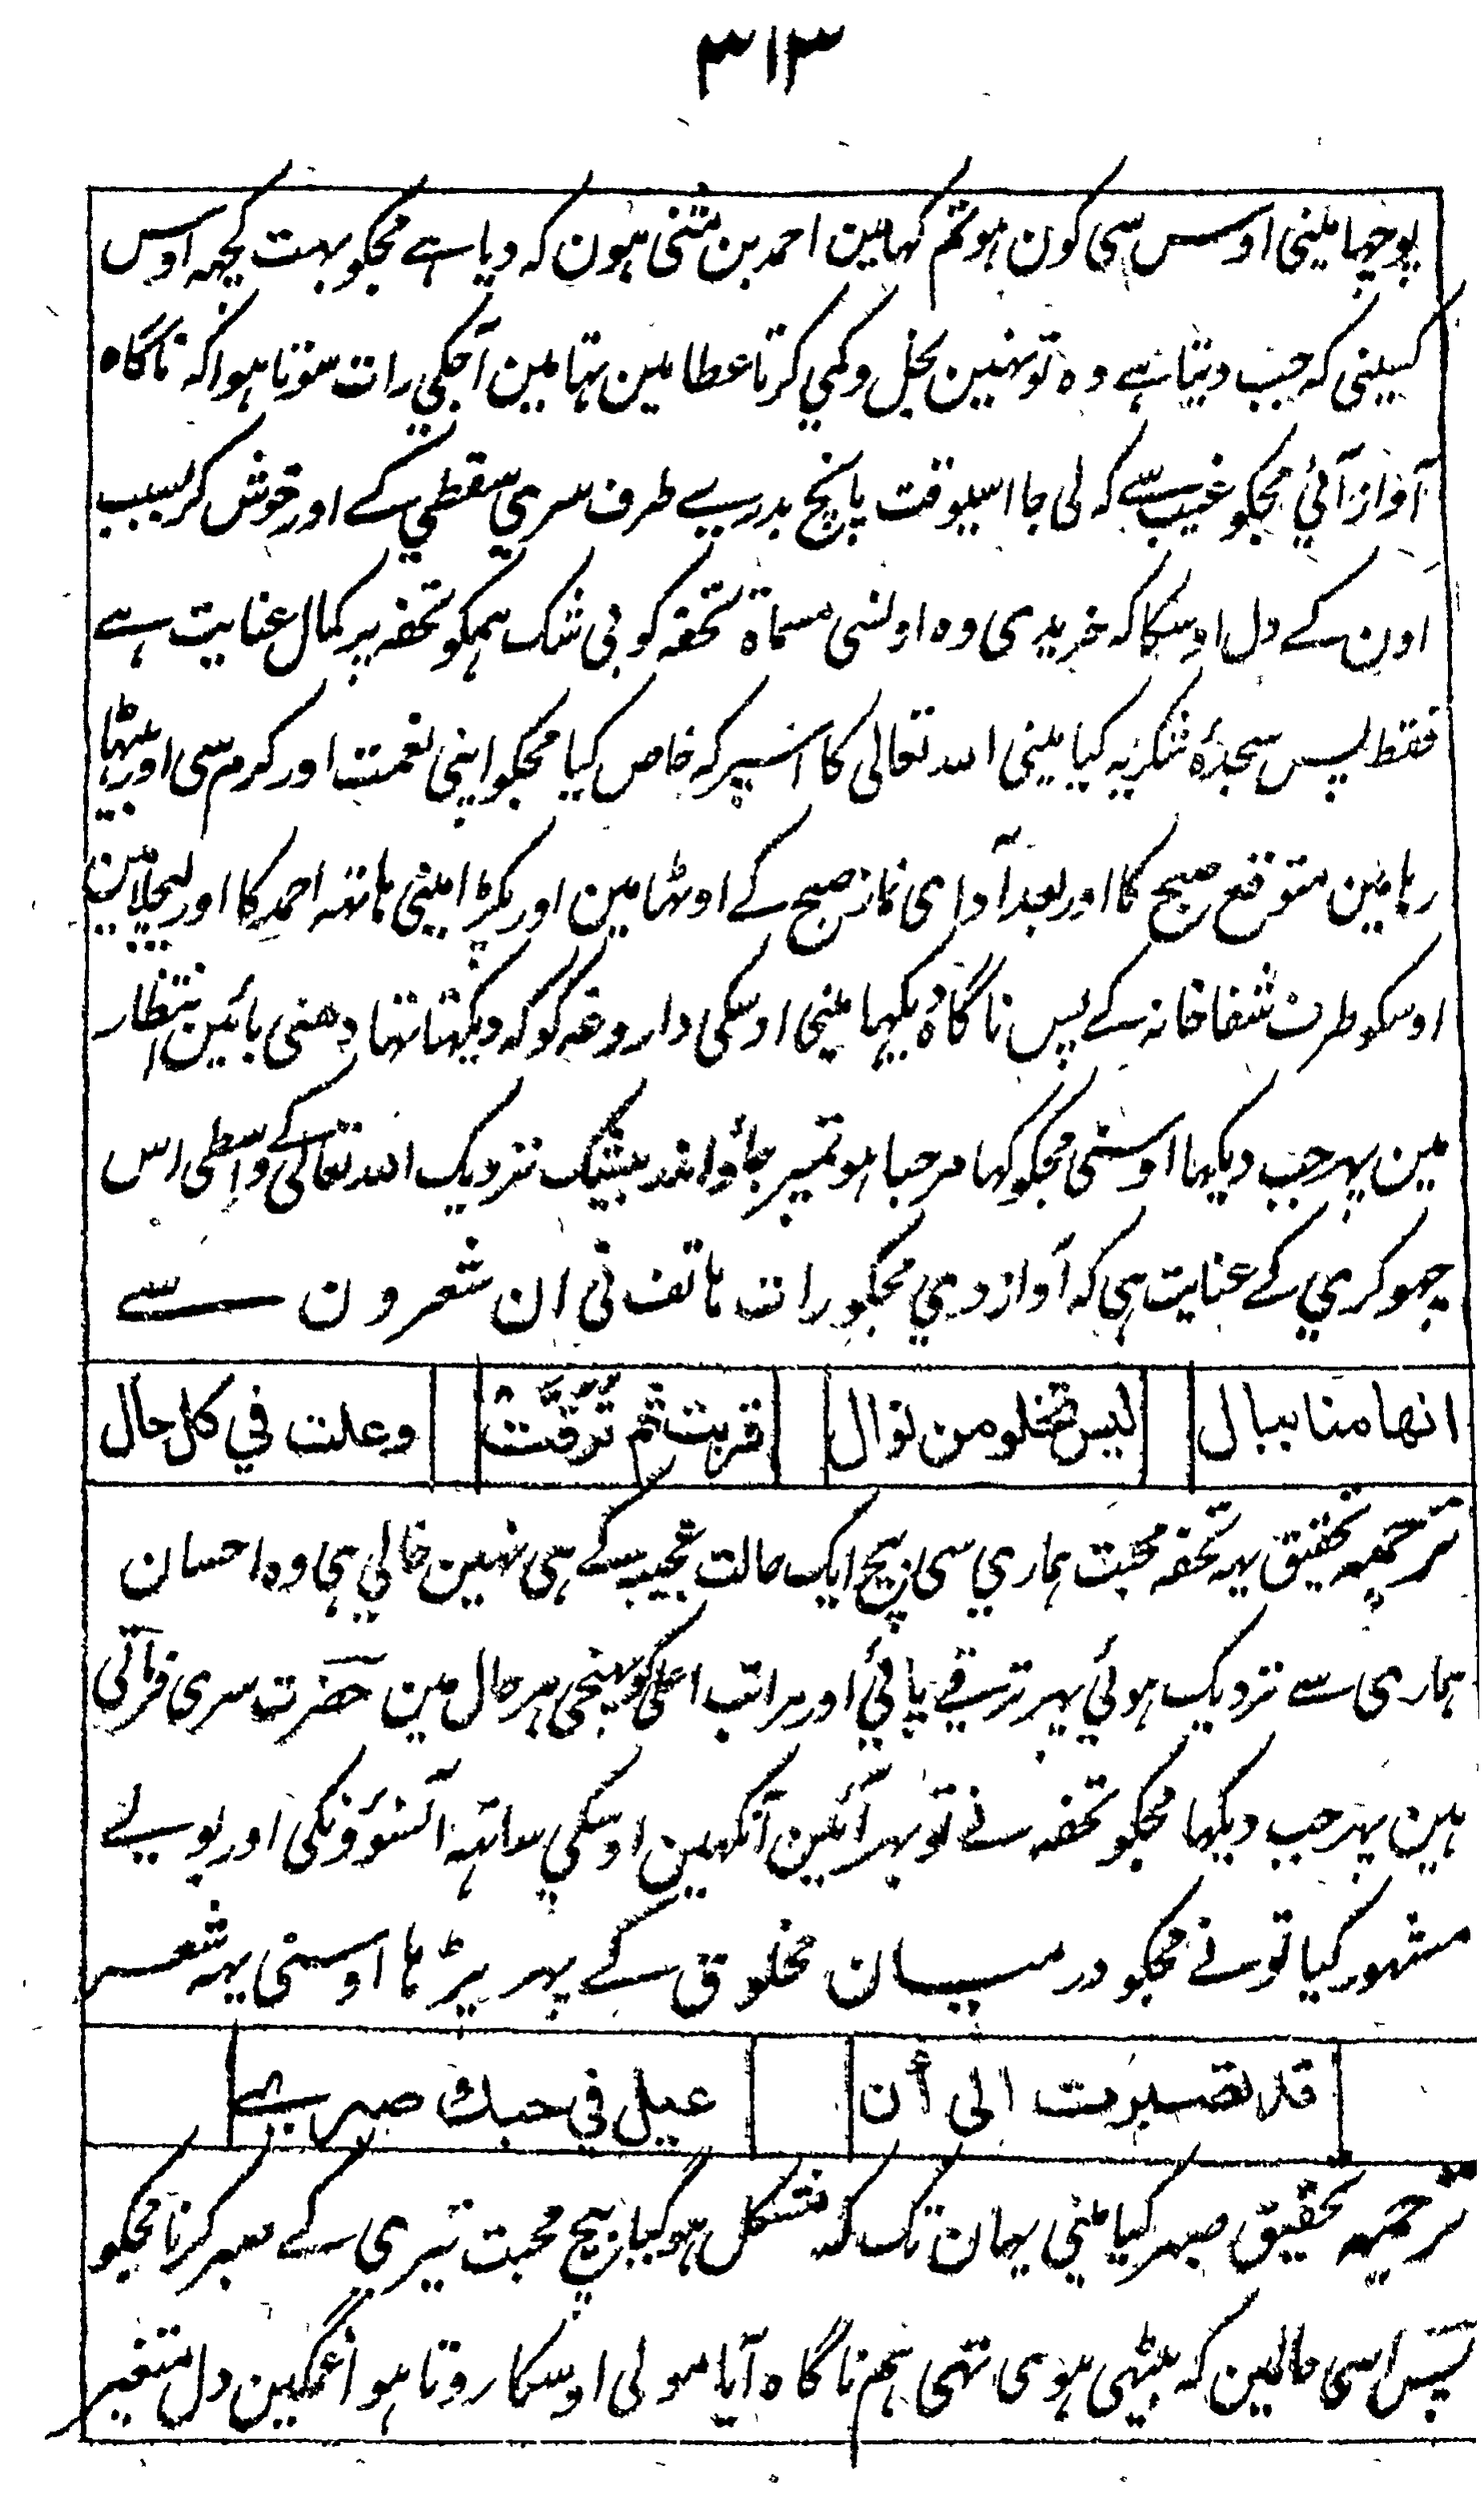 ۳۱۳
پوچہا مینی اوس سی کون ہو تم کہا مین احمد بن مثنی ہون کہ دیا ہے مجکو بہت کچہہ اوس
کسینی کہ جب دیتا ہے وہ تو نہین بخل و کمي کرتا عطا مین تہا مین آجکي رات سوتا ہوا کہ ناگاہ
آواز آئي مجکو غیب سے کہ لی جا اسیوقت پانچ بدرے طرف سري سقطي کے اور خوش کر بسبب
اون کے دل اوسکا کہ خریدی وہ اونسی مسماۃ تحفہ کو بی شک ہمکو تحفہ پر کمال عنایت ہے
فقط پس سجدۂ شکریہ کیا مینی اللہ تعالی کا اسپر کہ خاص کیا مجکو اپنی نعمت اور کرم سی اور بیٹہا
رہا مین متوقع صبح کا اور بعد آدای نماز صبح کے اوٹہا مین اور پکڑا مینی ہاتہہ احمد کا اور لیچلا مین
اوسکو طرف شفاخانہ کے پس ناگاہ دیکہا مینی اوسکی داروغہ کو کہ دیکہتا تہا دھنی بائین انتظار
مین پہر جب دیکہا اوسنی مجکو کہا مرحبا ہو تمپر جاؤ اندر بیشک نزدیک اللہ تعالی کے واسطی اس
چہوکري کے عنایت ہی کہ آواز دي مجکو رات ہاتف نی ان شعرون سے
انها منا ببال | ليس تخلو من نوال | قربت ثم ترقت | وعلت في كل حال
ترجمہ تحقیق یہہ تحفہ محبت ہماري سی بیچ ایک حالت عجیب کے ہی نہین خالي ہی وہ احسان
ہماری سے نزدیک ہوئي پہر ترقے پائي اور مراتب اعلی کو پہنچی ہر حال مین حضرت سری فرماتی
ہین پہر جب دیکہا مجکو تحفہ نے تو بہر آئین آنکہین اوسکي ساتہہ آنسوؤنکی اور بولے
مشہور کیا تونے مجکو درمیان مخلوق کے پہر پڑہا اوسنی یہہ شعر
قد تصبرت الى أن | عيل في حبك صبرے
ترجمہ تحقیق صبر کیا مینی یہان تک کہ مشکل ہو گیا بیچ محبت تیری کے صبر کرنا مجکو
پس اسی حالمین کہ بیٹہی ہوی تہی ہم ناگاہ آیا مولی اوسکا روتا ہوا غمگین دل متغیر